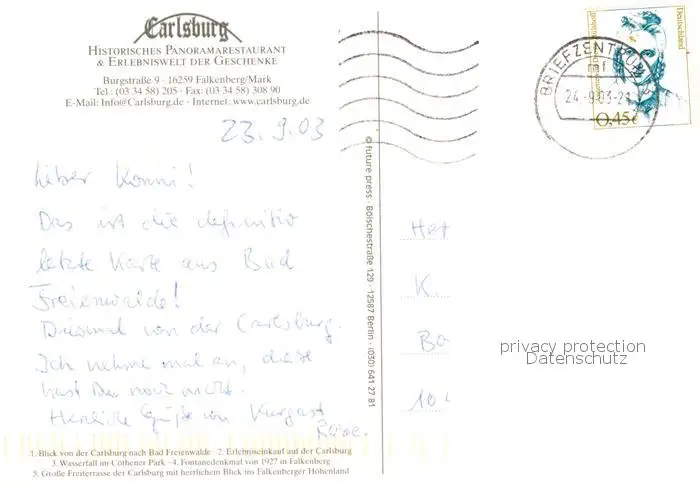 Carlsburg
HISTORISCHES PANORAMARESTAURANT
& ERLEBNISWELT DER GESCHENKE
Burgstraße 9 · 16259 Falkenberg/Mark
Tel.: (03 34 58) 205 · Fax: (03 34 58) 308 90
E-Mail: Info@Carlsburg.de · Internet: www.carlsburg.de
23.9.03
Lieber Konni!
Das ist die definitiv
letzte Karte aus Bad
Freienwalde!
Diesmal von der Carlsburg.
Ich nehme mal an, diese
hast Du noch nicht.
Herzliche Grüße von Kurgast
1. Blick von der Carlsburg nach Bad Freienwalde · 2. Erlebniseinkauf auf der Carlsburg
3. Wasserfall im Cöthener Park · 4. Fontanedenkmal von 1927 in Falkenberg
5. Große Freiterrasse der Carlsburg mit herrlichem Blick ins Falkenberger Höhenland
© future press · Bölschestraße 129 · 12587 Berlin · (030) 641 27 81
BRIEFZENTRUM
24.-9.03-21
Deutschland
0,45€
K.
Ba
10
privacy protection
Datenschutz